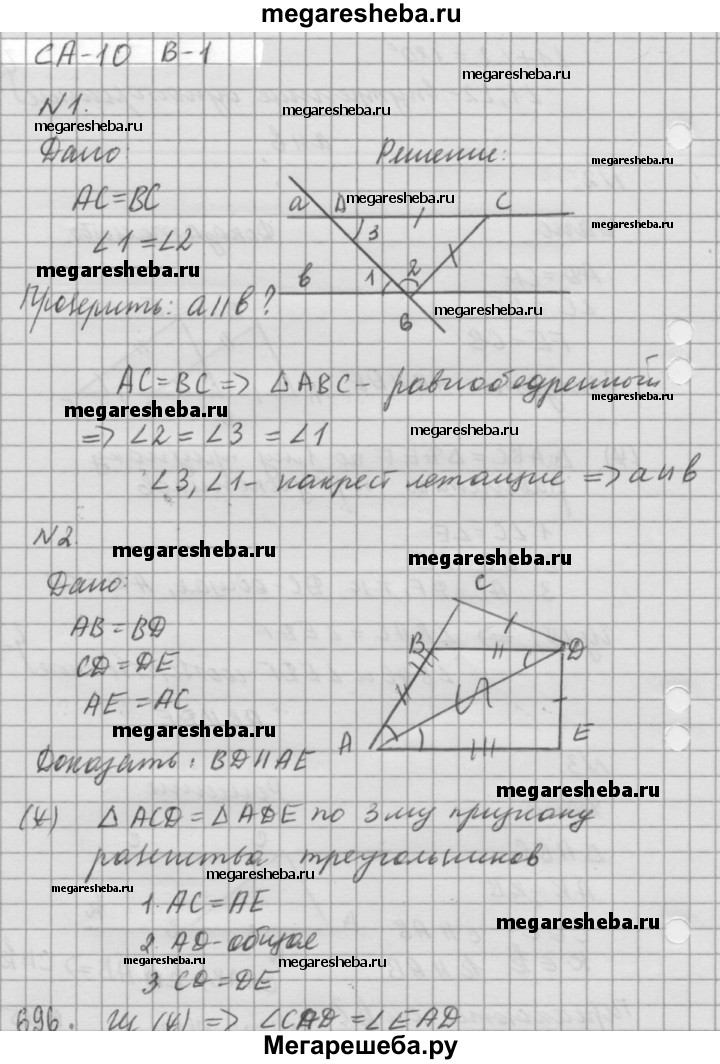 megaresheba.ru
СА-10 В-1
megaresheba.ru
N1.
megaresheba.ru
megaresheba.ru
Дано: Решение:
AC=BC
megaresheba.ru
a A C
megaresheba.ru
∠1=∠2
3
megaresheba.ru
в 1 2
Проверить: a||в?
megaresheba.ru
B
AC=BC => △ABC- равнобедренный
megaresheba.ru
megaresheba.ru
=> ∠2=∠3=∠1
megaresheba.ru
∠3, ∠1- накрест лежащие => a||в
megaresheba.ru
N2.
megaresheba.ru
megaresheba.ru
Дано:
C
AB=BD
B D
CD=DE
AE=AC
megaresheba.ru
A E
Доказать: BD||AE
megaresheba.ru
(*) △ACD=△ADE по 3му признаку
равенства треугольников
megaresheba.ru
megaresheba.ru
1. AC=AE
megaresheba.ru
2. AD-общая
megaresheba.ru
megaresheba.ru
3. CD=DE
696. Из (*) => ∠CAD=∠EAD
Мегарешеба.ру